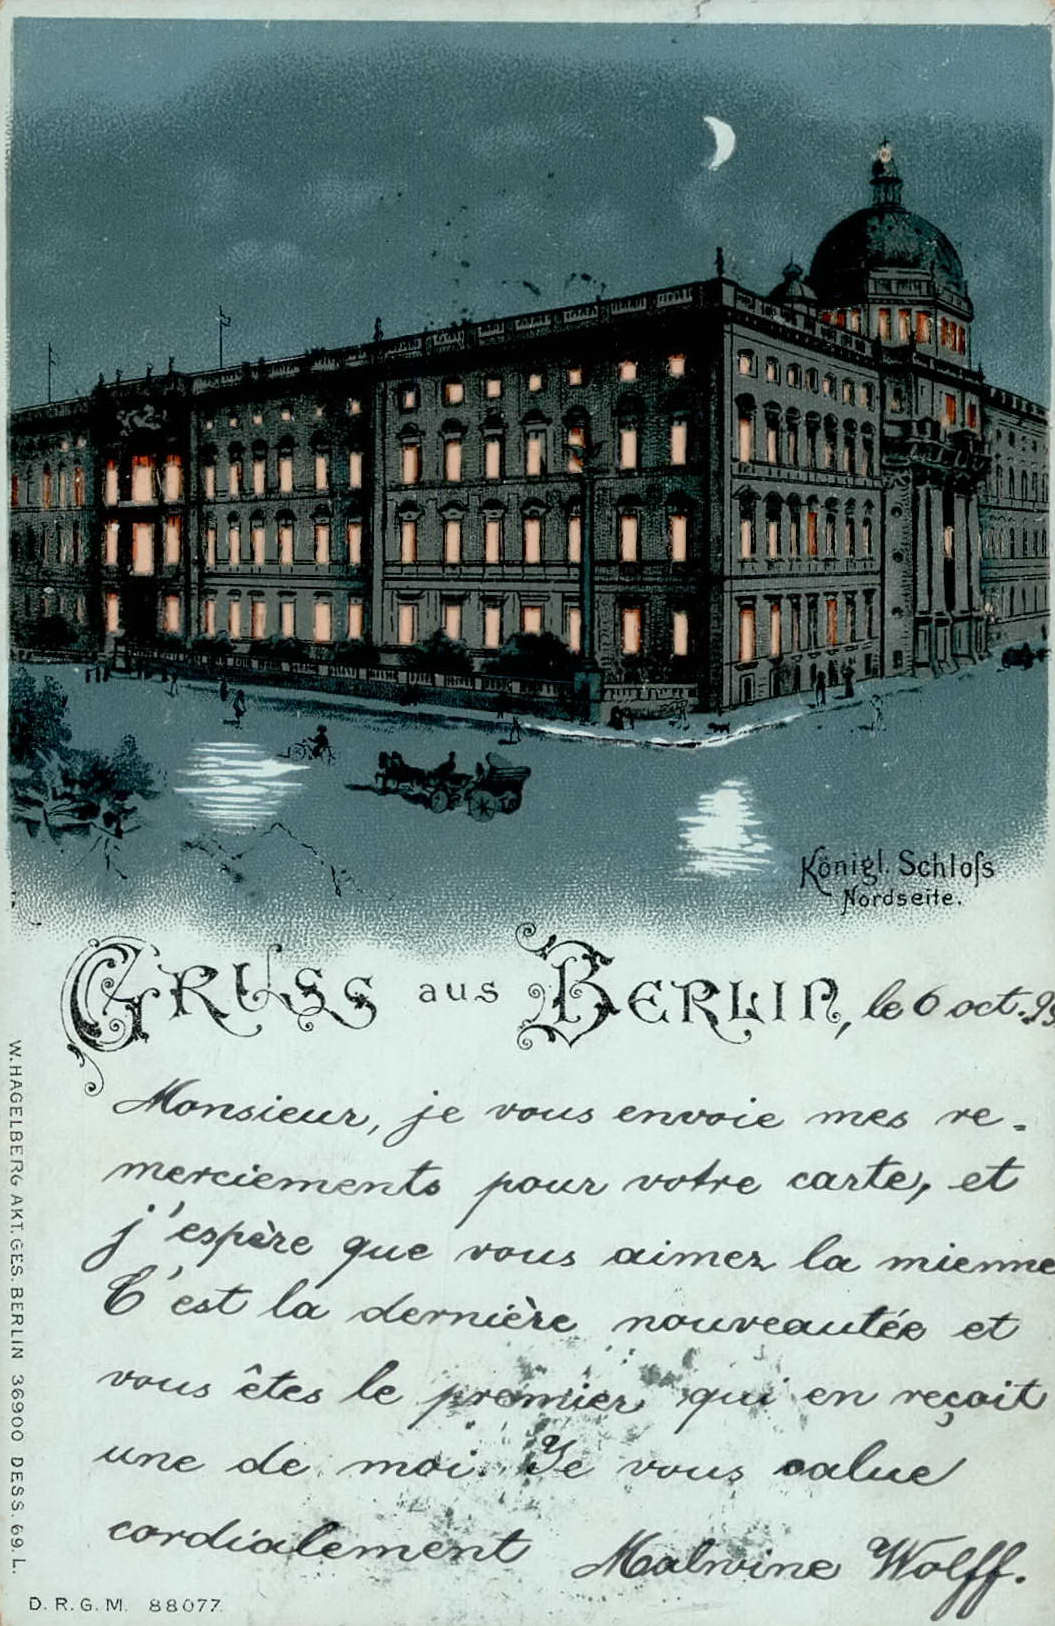 Königl. Schloſs
Nordseite.
GRUSS aus BERLIN, le 6 oct.
Monsieur, je vous envoie mes re-
merciements pour votre carte, et
j'espère que vous aimez la mienne
C'est la dernière nouveautée et
vous êtes le premier qui en reçoit
une de moi. Je vous salue
cordialement Malwine Wolff.
W. HAGELBERG AKT. GES. BERLIN 36900 DESS. 69. L.
D. R. G. M. 88077.